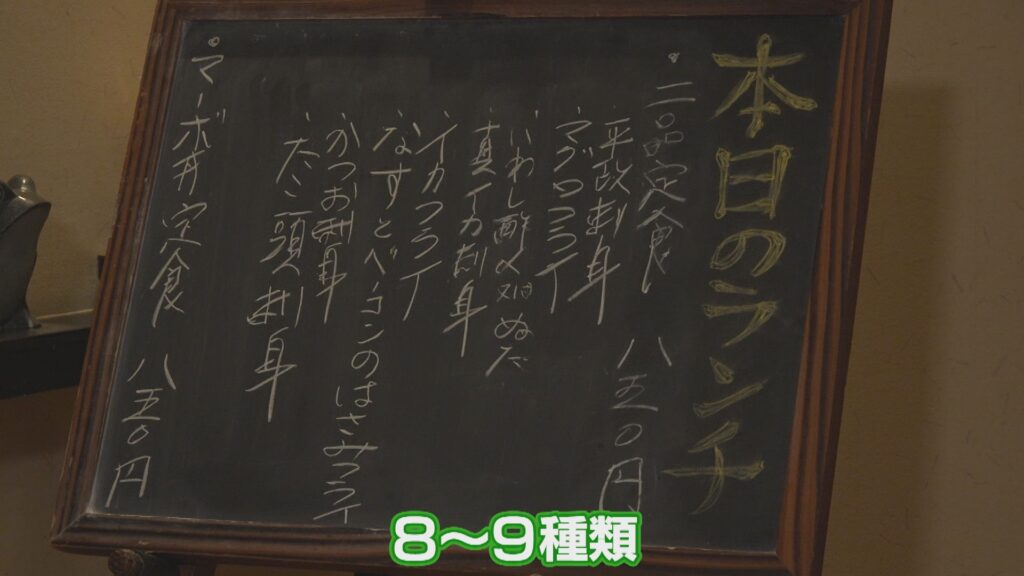 本日のランチ
・二品定食 八五〇円
・平政刺身
・マグロフライ
・いわし酢〆 ぬた
・真イカ刺身
・イカフライ
・なすとベーコンのはさみフライ
・かつお刺身
・たこ頭刺身
・マーボ丼定食 八五〇円
8〜9種類